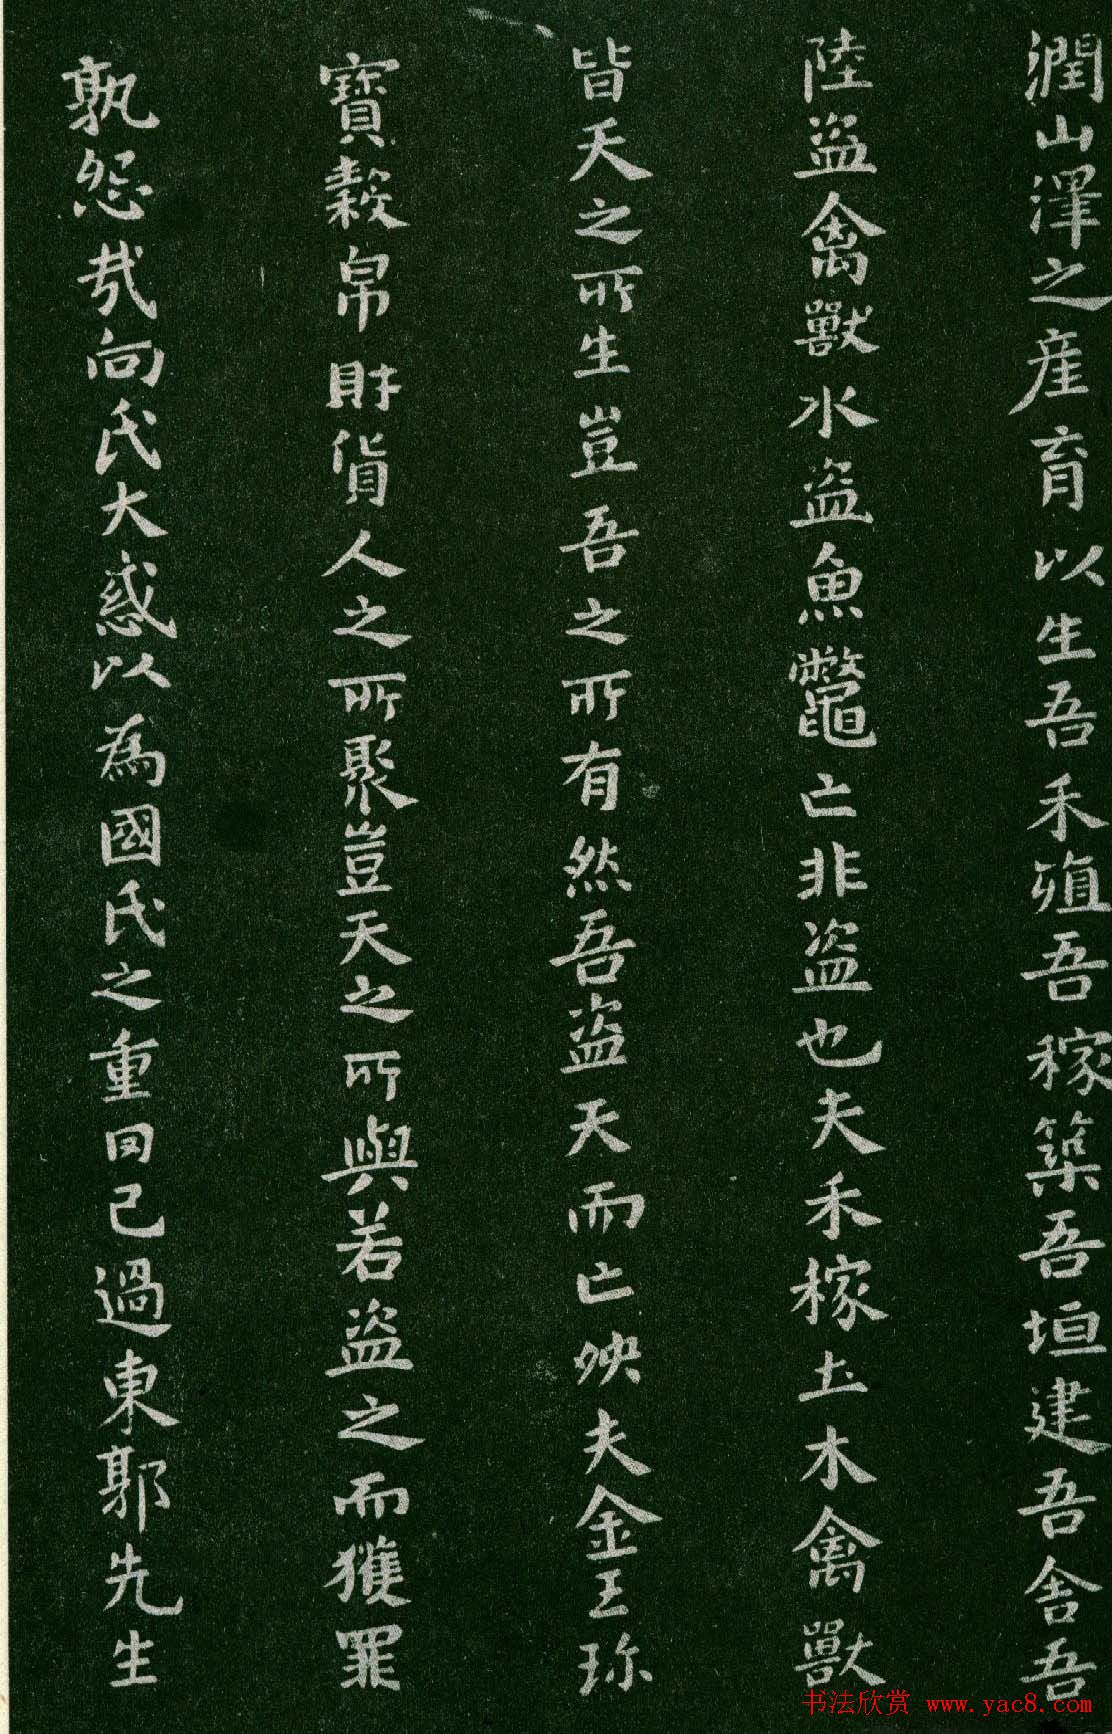 潤山澤之產育以生吾禾殖吾稼築吾垣建吾舍吾
陸盜禽獸水盜魚鼈亡非盜也夫禾稼土木禽獸
皆天之所生豈吾之所有然吾盜天而亡殃夫金玉珎
寶穀帛財貨人之所聚豈天之所與若盜之而獲罪
孰怨哉向氏大惑以為國氏之重罔己過東郭先生
书法欣赏 www.yac8.com